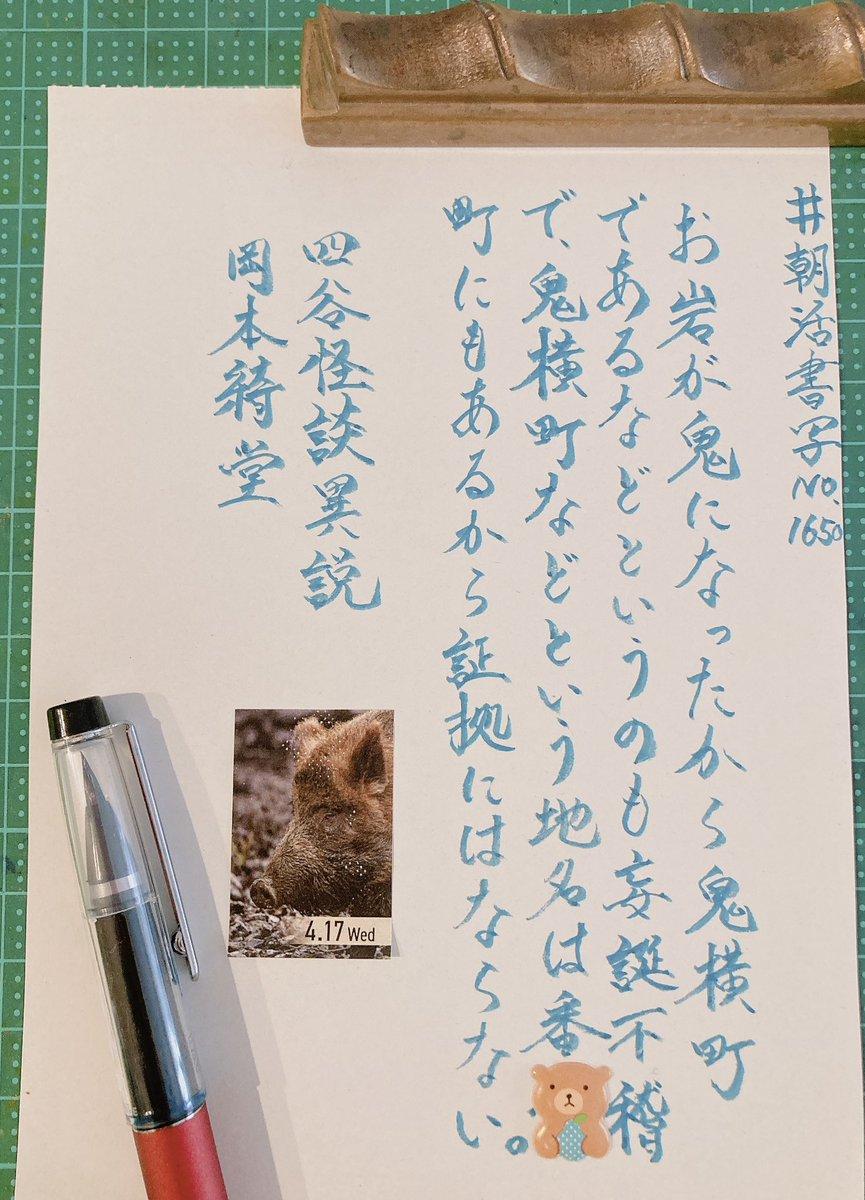 #朝活書写 No.1650
お岩が鬼になったから鬼横町
であるなどというのも妄誕不稽
で、鬼横町などという地名は番
町にもあるから証拠にはならない。
四谷怪談異説
岡本綺堂
4.17 Wed